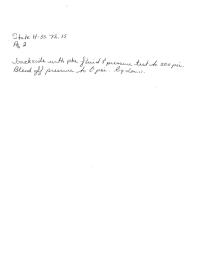 State H-35 Th. 15
Pg 2
backside with pkr fluid & pressure test to 500 psi.
Bleed off pressure to 0 psi. Rig down.